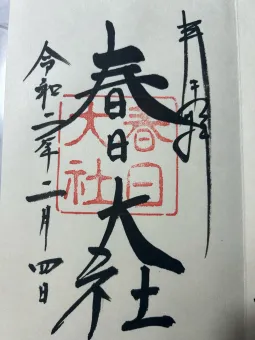 奉拝
春日大社
春日大社
令和二年二月四日